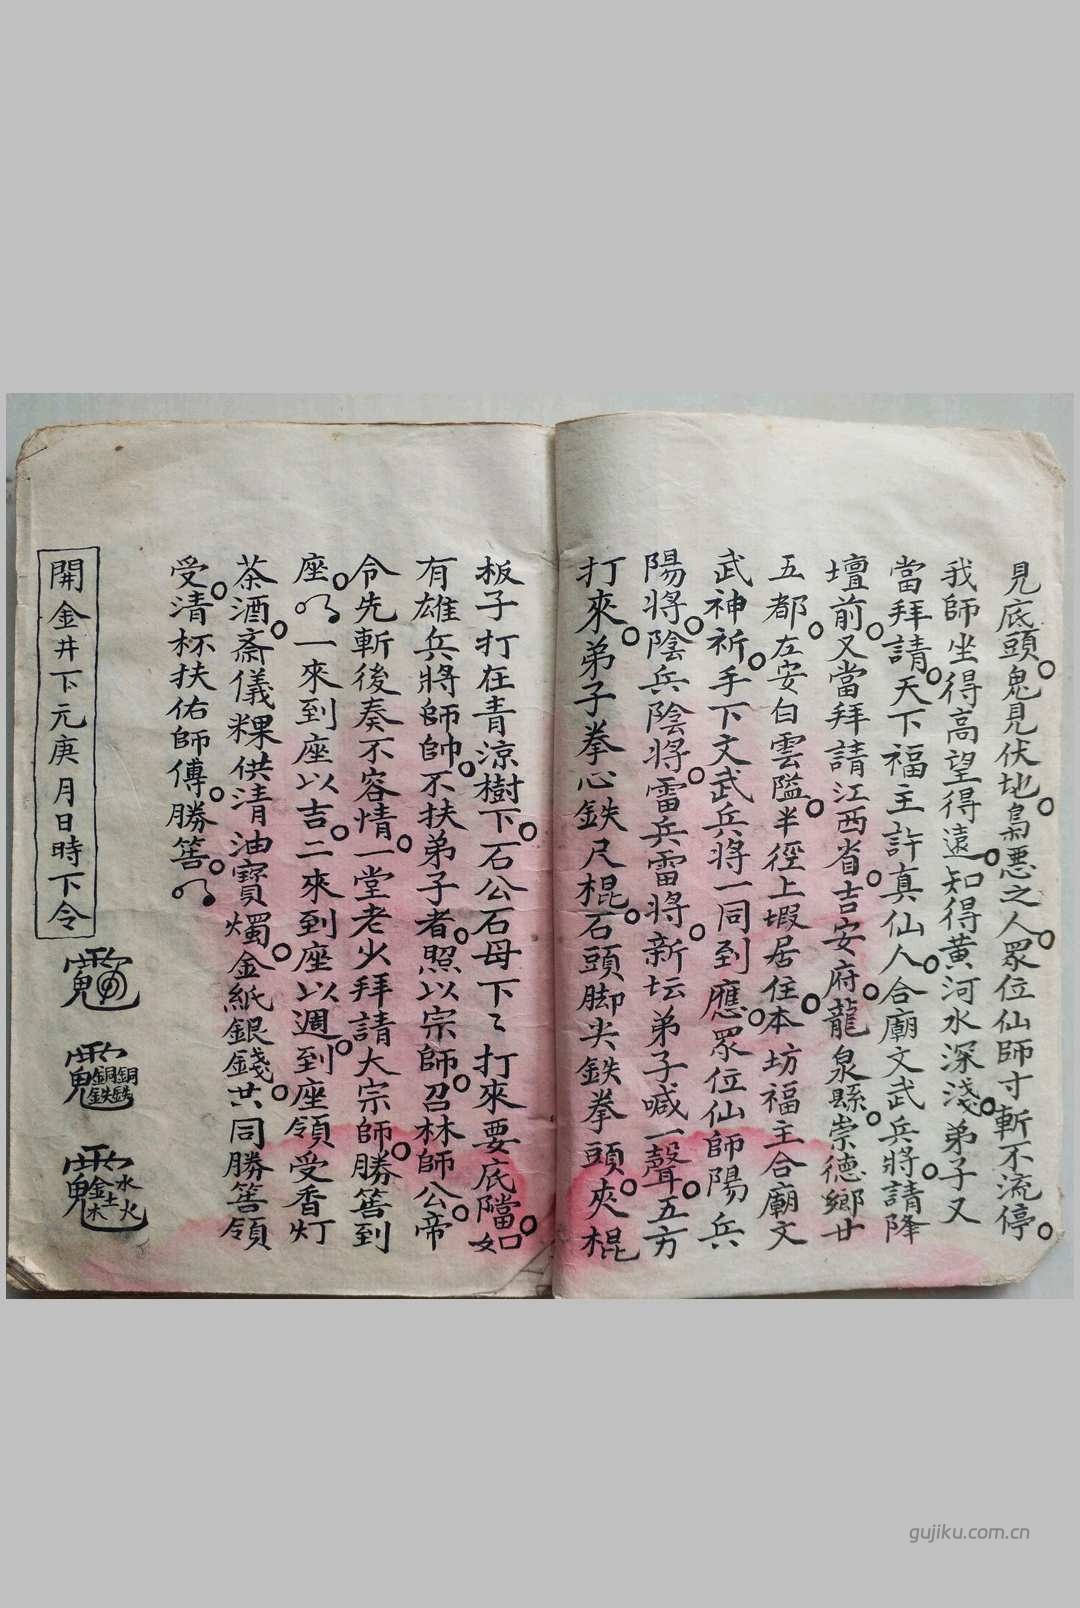 見底頭。鬼見伏地。梟惡之人。眾位仙師寸斬不流停。
我師坐得高望得遠。知得黃河水深淺。弟子又
當拜請。天下福主許真仙人。合廟文武兵將。請降
壇前。又當拜請江西省。吉安府。龍泉縣。崇德鄉廿
五都。左安白雲隘。半徑上塅居住。本坊福主合廟文
武神祈。手下文武兵將一同到應。眾位仙師陽兵
陽將。陰兵陰將。雷兵雷將。新坛弟子喊一聲。五方
打來。弟子拳心鉄尺棍。石頭脚尖鉄拳頭。夾棍
板子打在青涼樹下。石公石母下〻打來要底擋。口
有雄兵將師帥。不扶弟子者。照以宗師。召林師公。帝
令先斬後奏不容情。一堂老少拜請大宗師。勝筶到
座。一來到座以吉。二來到座以週。到座領受香灯
茶酒。斋儀粿供清油寶燭。金紙銀錢。共同勝筶領
受清。杯扶佑師傅。勝筶。
開金井下元庚月日時下令
銅銅鉄鉄
金木水火土
gujiku.com.cn